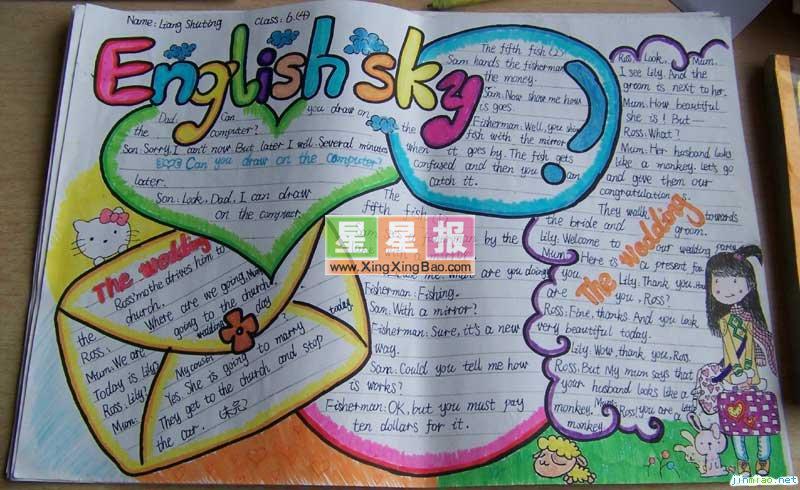 Name: Liang Shuting Class: 6.(4)
English sky
Dad: Can you draw on
the computer?
Son: Sorry, I can't now. But later I will. Several minutes
Can you draw on the computer?
later.
Son: Look, Dad, I can draw
on the computer.
The wedding
Ross' mother drives him to
the church.
Ross: Where are we going, Mum
Mum: We are going to the church.
Today is Lily wedding day
Ross: Lily? My cousin? today
Mum: Yes. She is going to marry
They get to the church and stop
the car.
The fifth fish (2)
Sam hands the fisherman
the money.
Sam: Now show me how
is goes.
Fisherman: Well, you shine
the fish with the mirror
when it goes by. The fish gets
confused and then you can
catch it.
The
fifth fish
by the
me. What are you doing
Fisherman: Fishing.
Sam: With a mirror?
Fisherman: Sure, it's a new
way.
Sam: Could you tell me how
is works?
Fisherman: OK, but you must pay
ten dollars for it.
Ross: Look, Mum.
I see Lily. And the
groom is next to her.
Mum: How beautiful
she is! But—
Ross: What?
Mum: Her husband looks
like a monkey. Let's go
and give them our
congratulation
They walk towards
the bride and groom.
Lily: Welcome to our wedding party
Mum: Here is a present for
you.
Lily: Thank you. How
are you, Ross?
Ross: Fine, thanks. And you look
very beautiful today.
Lily: Wow, thank you, Ross.
Ross: But My mum says that
your husband looks like a
monkey.
Mum: Ross! you are a little
monkey
The wedding
星星报
www.XingXingBao.com
jinmiao.net